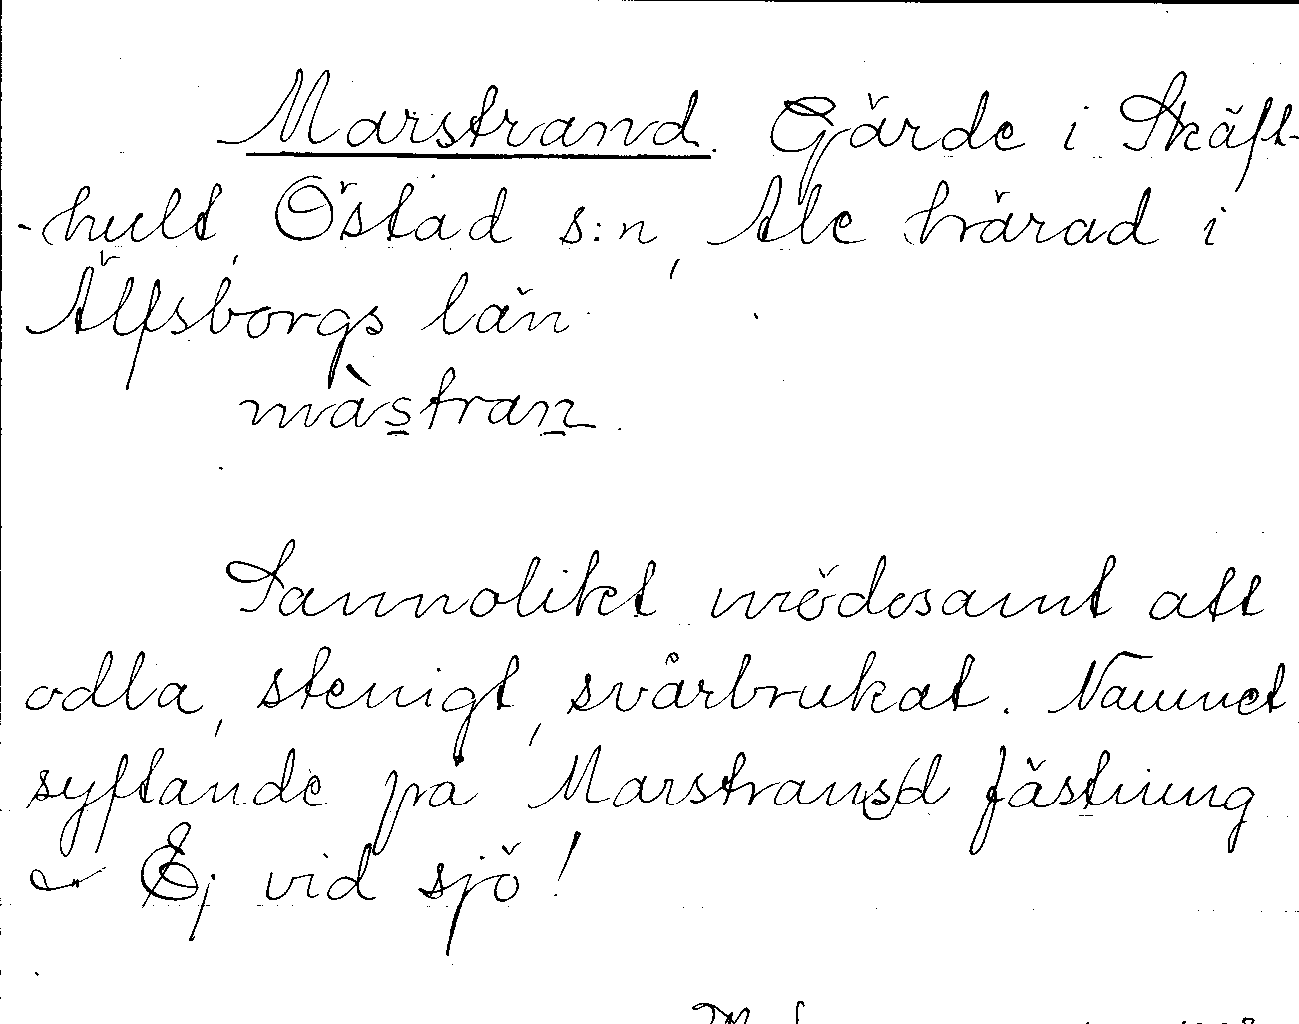 Marstrand. Gärde i Skäft-
-hult, Östad s:n, Ale härad i
Älfsborgs län
màstran.
Sannolikt mödosamt att
odla, stenigt, svårbrukat. Namnet
syftande på Marstrands/d fästning
Ej vid sjö!